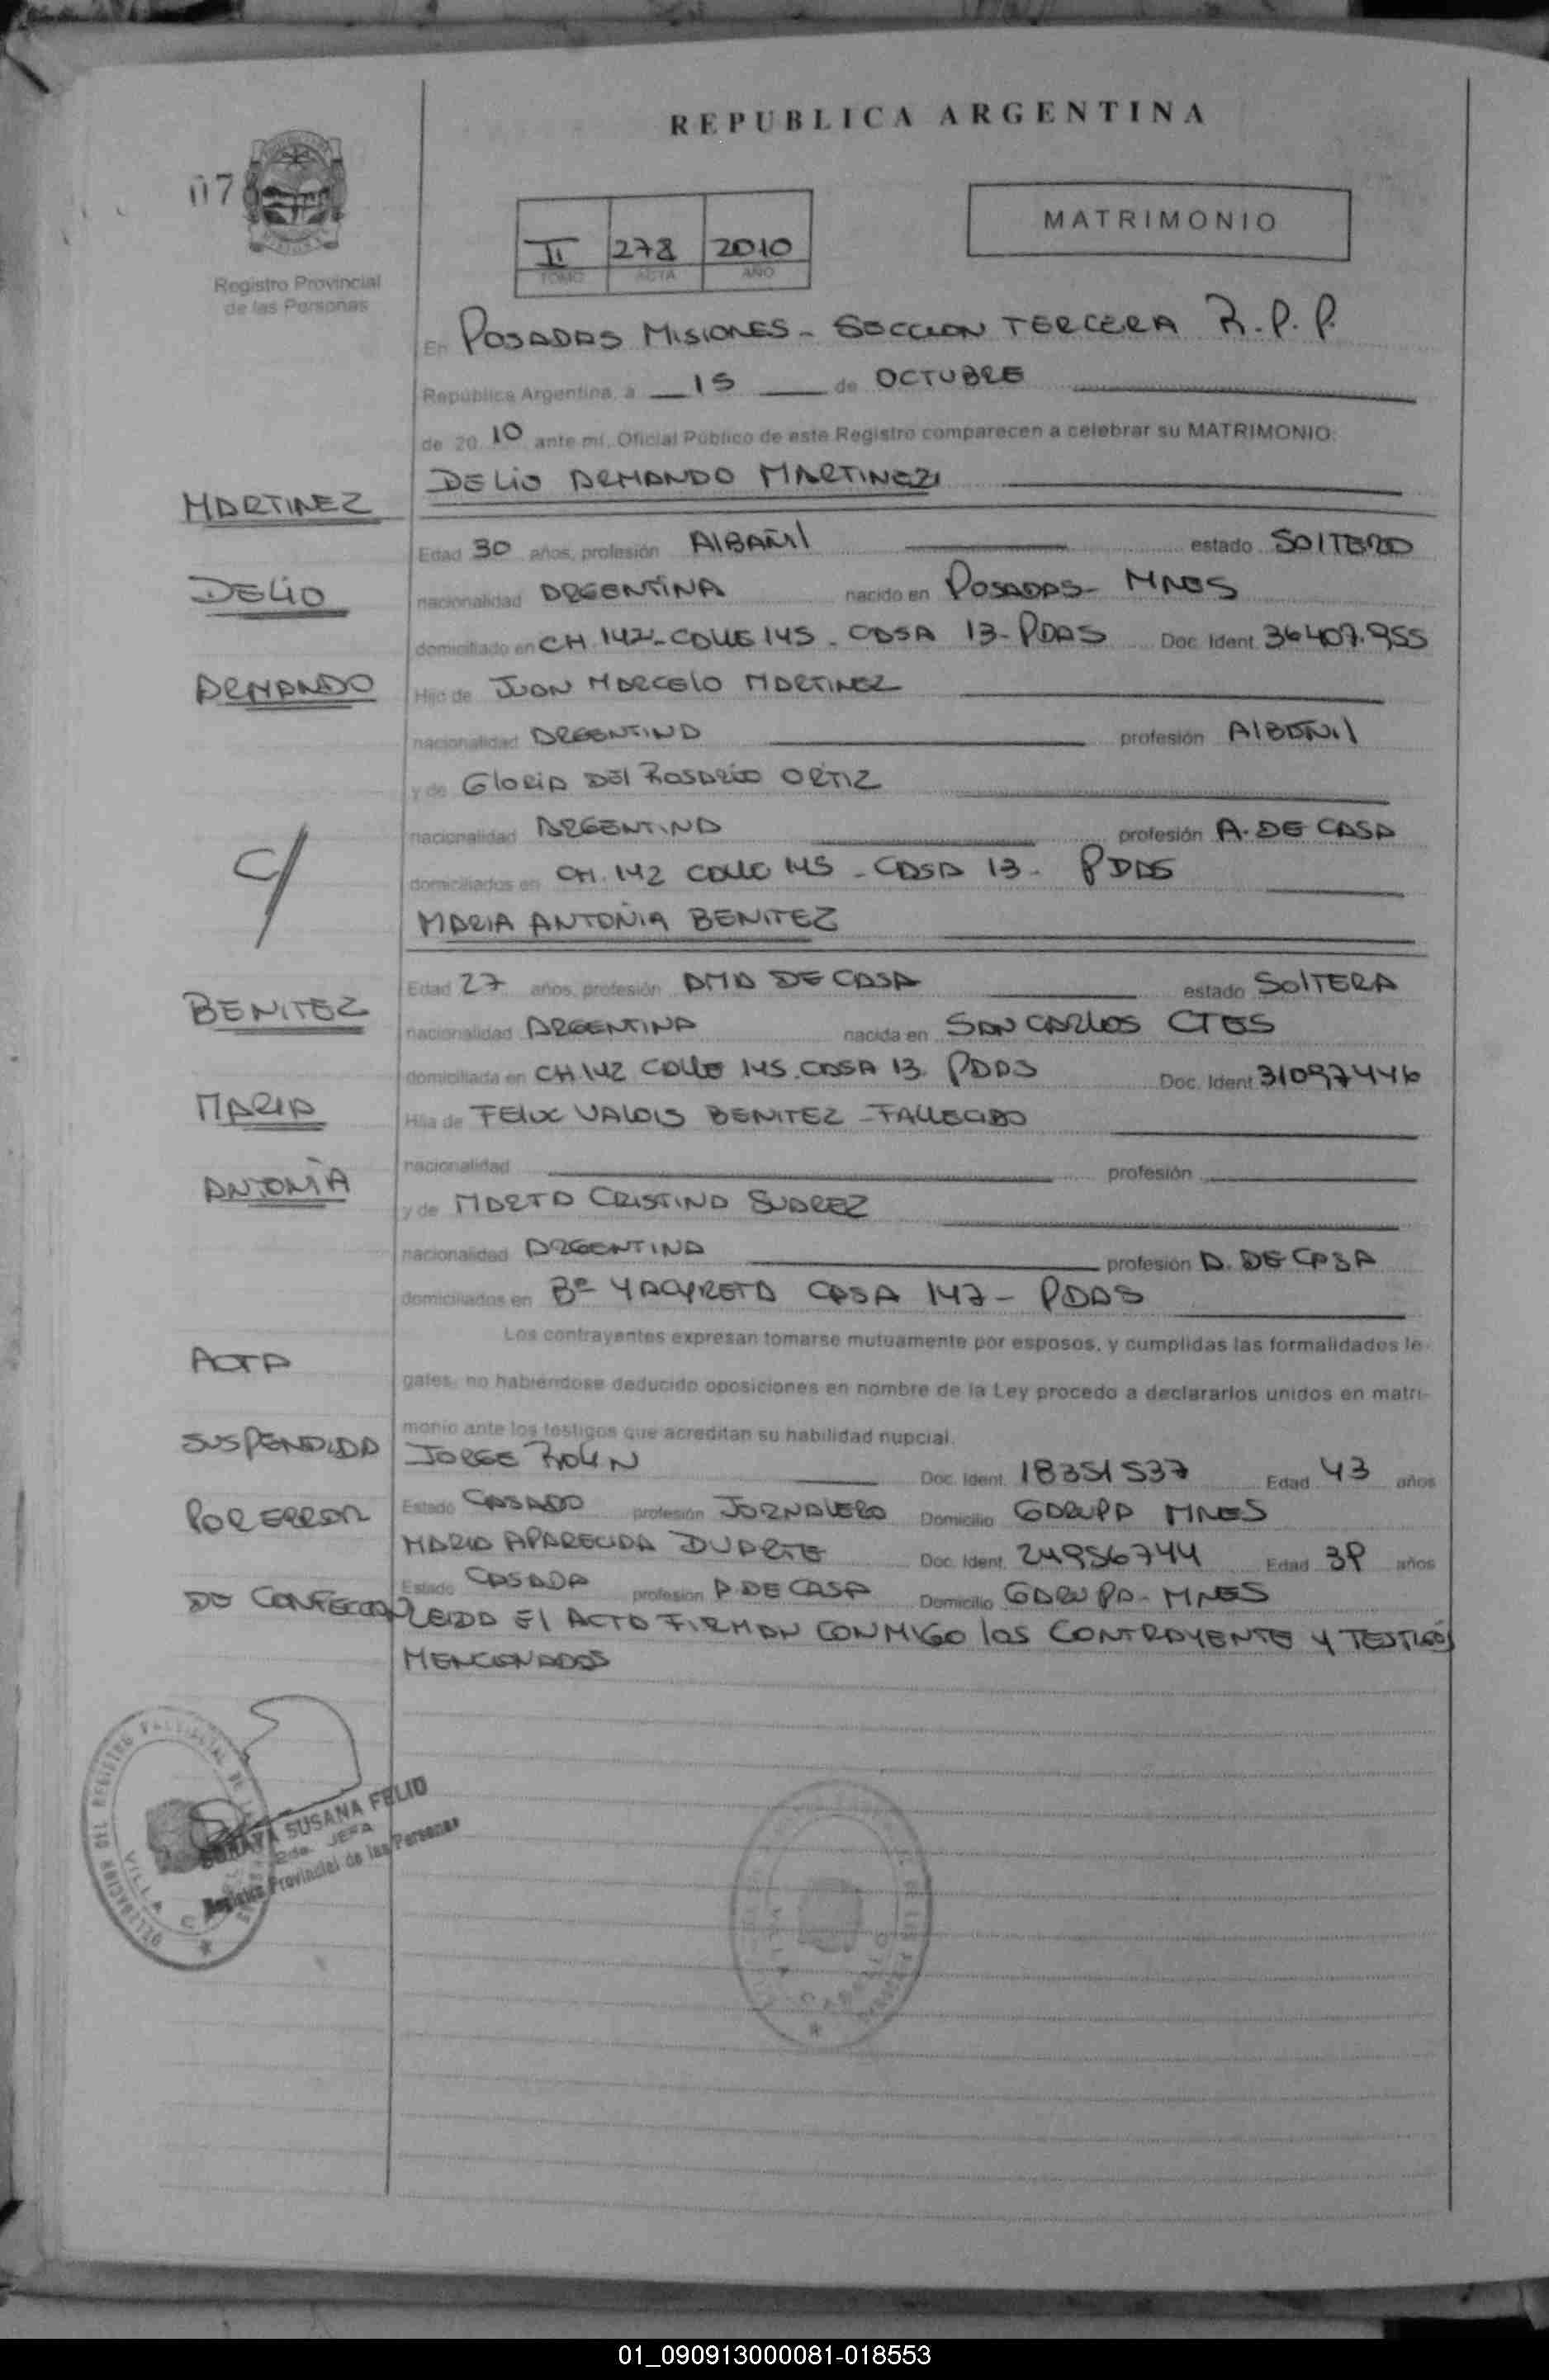 REPUBLICA ARGENTINA
07
Registro Provincial
de las Personas
II 278 2010
TOMO ACTA AÑO
MATRIMONIO
En POSADAS MISIONES - SECCION TERCERA R.P.P.
República Argentina, a 15 de OCTUBRE
de 20 10 ante mí, Oficial Público de este Registro comparecen a celebrar su MATRIMONIO:
DELIO ARMANDO MARTINEZ
MARTINEZ
Edad 30 años, profesión AlBAÑIl estado SOlTERO
DELIO
nacionalidad ARGENTINA nacido en POSADAS - MNES
domiciliado en CH. 142 - CALLE 145 - CASA 13 - PDAS Doc. Ident. 36407.955
ARMANDO
Hijo de JUAN MARCELO MARTINEZ
nacionalidad ARGENTINA profesión AlBAÑIl
y de GlORIA DEl ROSARIO ORTIZ
nacionalidad ARGENTINA profesión A. DE CASA
C/
domiciliados en CH. 142 CALLE 145 - CASA 13 - PDAS
MARIA ANTONIA BENITEZ
Edad 27 años, profesión AMA DE CASA estado SOlTERA
BENITEZ
nacionalidad ARGENTINA nacida en SAN CARLOS CTES
domiciliada en CH 142 CALLE 145. CASA 13. PDAS Doc. Ident. 31097446
MARIA
Hija de FELIX VALOIS BENITEZ - FALLECIDO
nacionalidad profesión
ANTONIA
y de MARTA CRISTINA SUAREZ
nacionalidad ARGENTINA profesión A. DE CASA
domiciliados en Bº YACYRETA CASA 147 - PDAS
Los contrayentes expresan tomarse mutuamente por esposos, y cumplidas las formalidades le-
ACTA
gales, no habiéndose deducido oposiciones en nombre de la Ley procedo a declararlos unidos en matri-
monio ante los testigos que acreditan su habilidad nupcial.
SUSPENDIDA
JORGE ROLIN Doc. Ident. 18351537 Edad 43 años
Estado CASADO profesión JORNALERO Domicilio GARUPA MNES
POR ERROR
MARIA APARECIDA DUARTE Doc. Ident. 24956744 Edad años
Estado CASADA profesión A. DE CASA Domicilio GARUPA - MNES
DE CONFECCION
LEIDA El ACTA FIRMAN CONMIGO lOS CONTRAYENTE Y TESTIGOS
MENCIONADOS
SUSANA FELIO
2da. JEFA
Registro Provincial de las Personas
DELEGACION DEL REGISTRO PROVINCIAL DE
VILLA
01_090913000081-018553